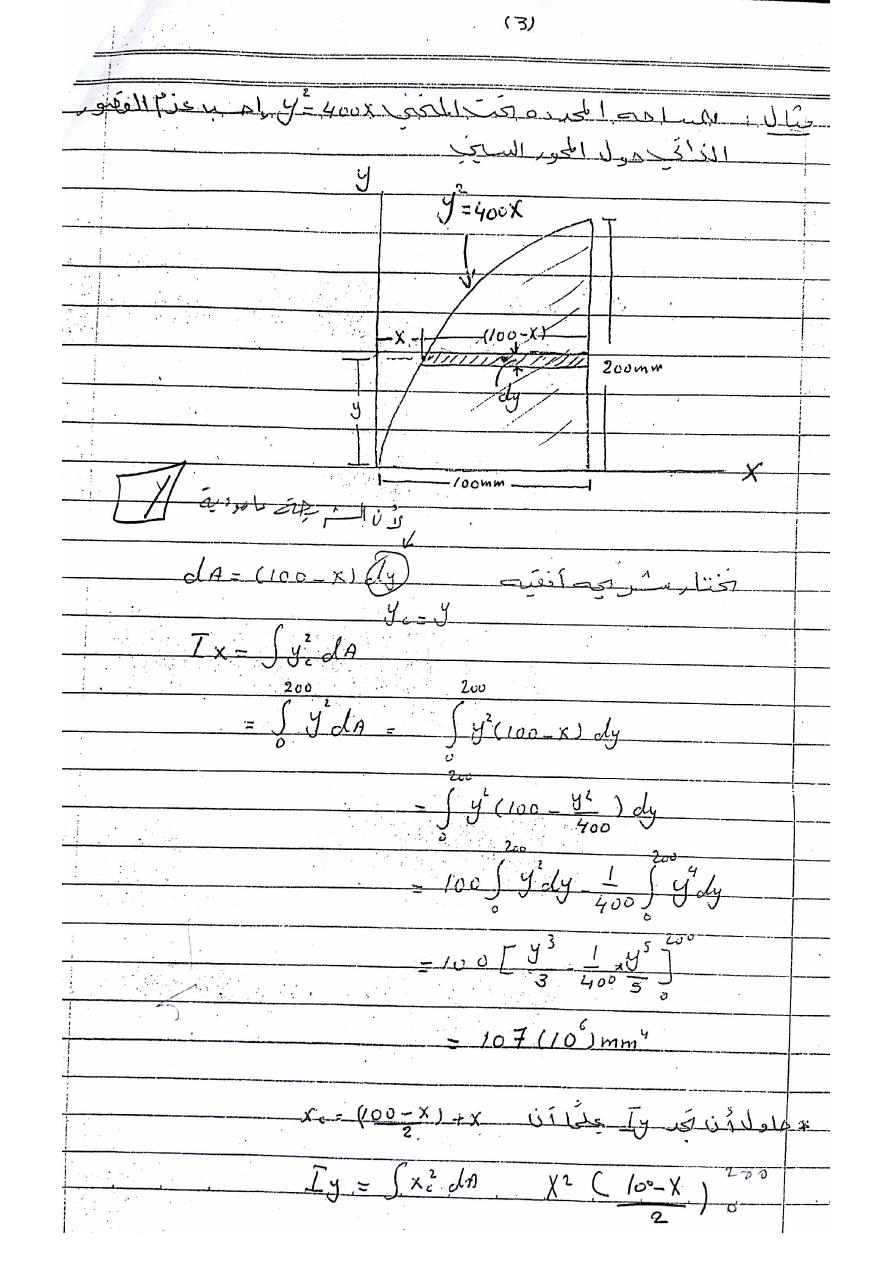 (3)
مثال : للمساحه المحدده تحت المنحني y² = 400x احسب عزم القصور
الذاتي حول المحور السيني
y
y² = 400x
x (100-x)
200mm
dy
y
100mm
x
لأن الشريحة
dA = (100 - x) dy نختار شريحه أفقيه
yc = y
Ix = ∫ yc² dA
= ∫₀²⁰⁰ y² dA = ∫₀²⁰⁰ y² (100 - x) dy
= ∫₀²⁰⁰ y² (100 - y²/400) dy
= 100 ∫₀²⁰⁰ y² dy - 1/400 ∫₀²⁰⁰ y⁴ dy
= 100 [ y³/3 - 1/400 * y⁵/5 ]₀²⁰⁰
= 107 (10⁶) mm⁴
* حاول أن تجد Iy علماً أن xc = (100 - x)/2 + x
Iy = ∫ xc² dA x² ( 100-x / 2 )₀²⁰⁰